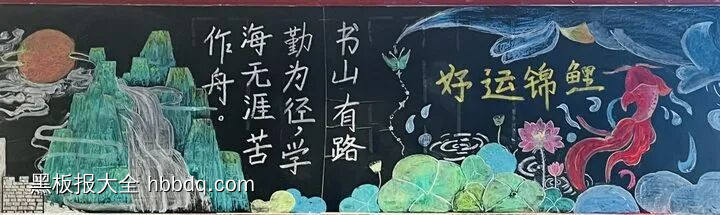 书山有路
勤为径,学
海无涯苦
作舟。
好运锦鲤
黑板报大全 hbbdq.com